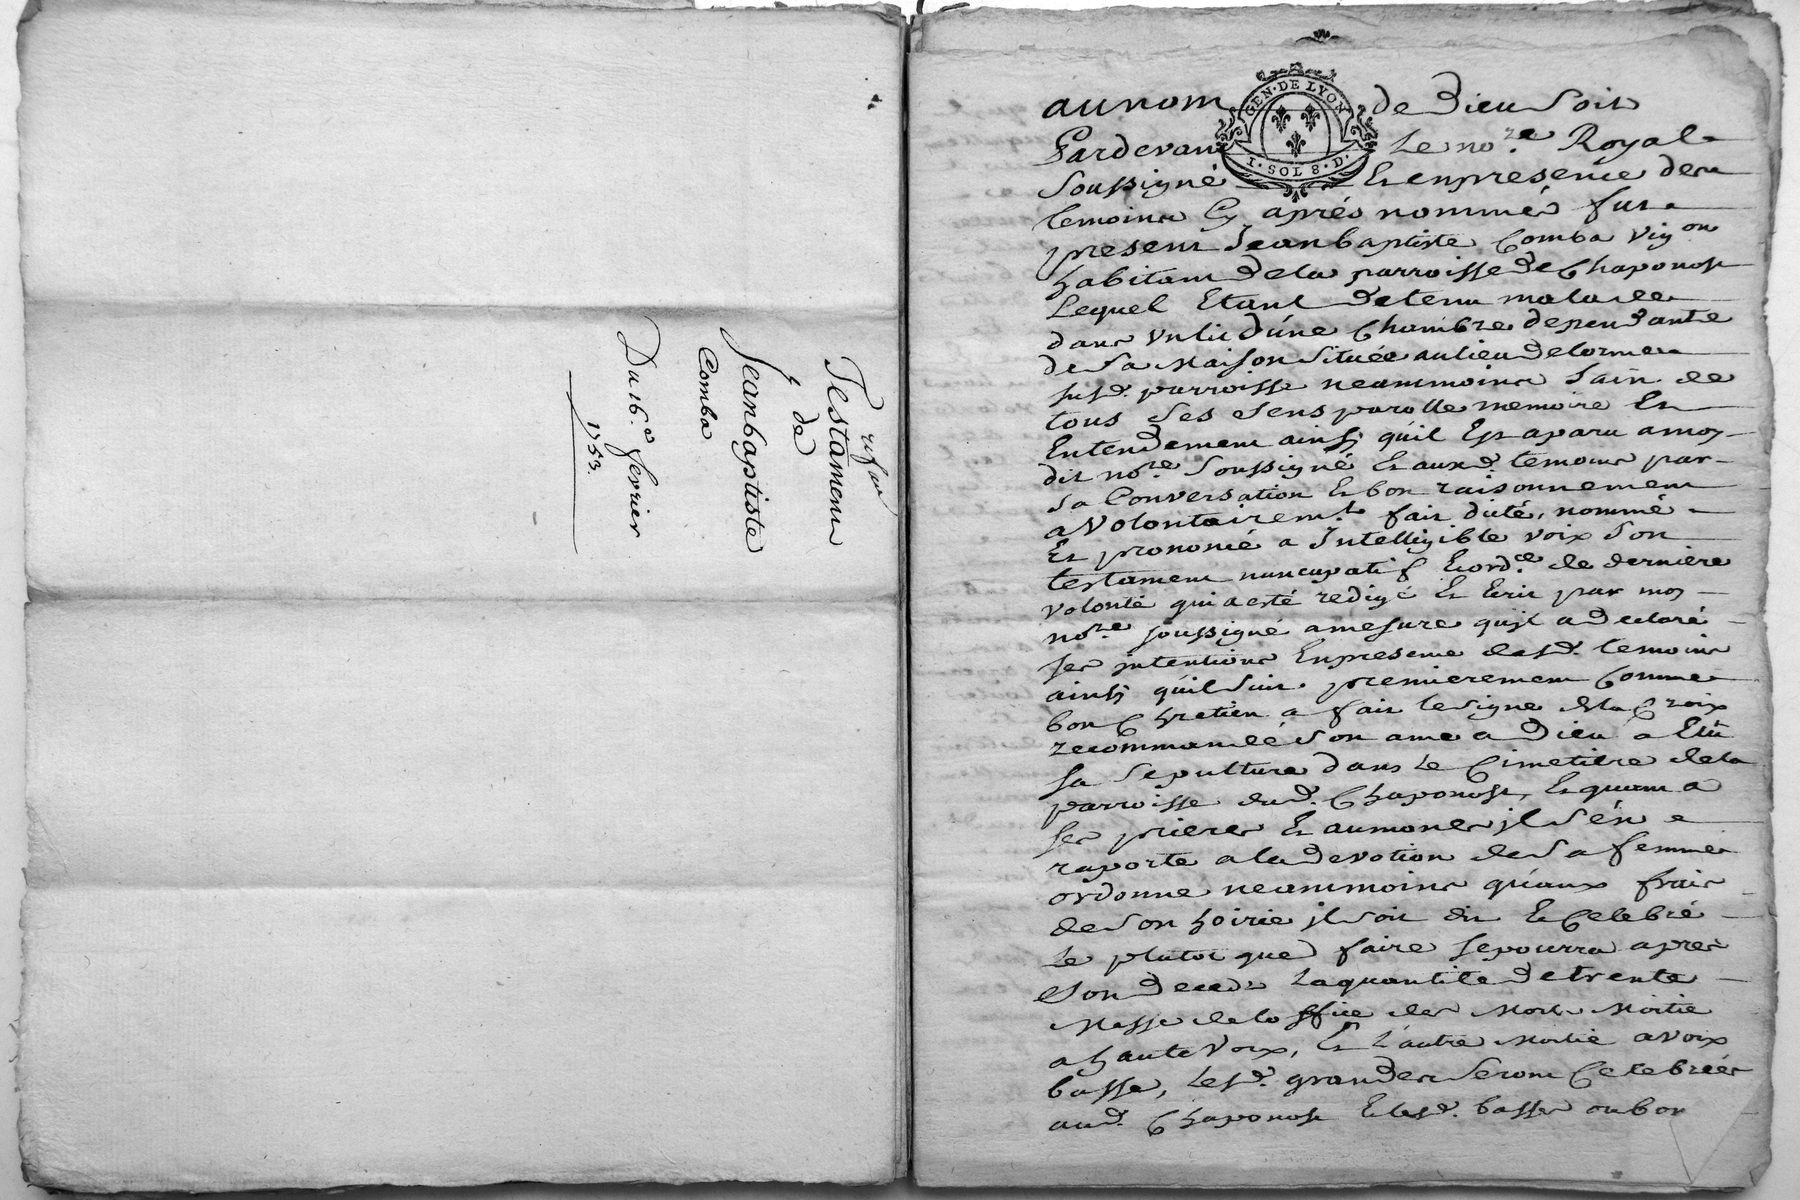 Testament
de
Jeanbaptiste
Comba
Du 16.e fevrier
1753.
GEN. DE LYON
1. SOL 8. D.
au nom de Dieu Soit
Pardevant Le no.re Royal
Soussigné Et en presence des
temoins Cy après nommés fut
present Jeanbaptiste Comba Vig.on
habitant de la parroisse de Chaponost
Lequel Etant detenu malade
dans Un lit d'úne Chambre dependante
de Sa Maison Située au lieu delorme
susd. parroisse neammoins Sain de
tous Ses Sens parolle memoire Et
Entendement ainsy qu'il Est aparu a moy
dit no.re Soussigné Et auxd. temoins par
Sa Conversation Et bon raisonnement
a Volontairem.t fait dicté, nommé
Et prononcé a Intelligible voix Son
testament nuncupatif Et ord.ce de derniere
volonté qui a esté redigé Et Ecrit par moy
no.re soussigné a mesure qu'jl a declaré
ses jntentions En presence desd. temoins
ainsy qu'il Suit. premierement Comme
bon Chretien a fait le Signe de la Croix
recommandé Son ame a Dieu a Elû
sa Sepulture dans Le Cimetiere de la
parroisse dud. Chaponost, Et quant a
ses prieres Et aumones jl S'én
raporte a la devotion de Sa femme
ordonne neammoins qu'aux frais
de Son hoirie jl Soit dit Et Celebré
Le plutot que faire se pourra après
Son Deceds La quantité de trente
Messe de lo ffice des Morts Moitié
a haute Voix, Et L'autre Moitié a voix
basse, Lesd. grandes Seront Celebrées
aud. Chaponost Et lesd. basses ou bon